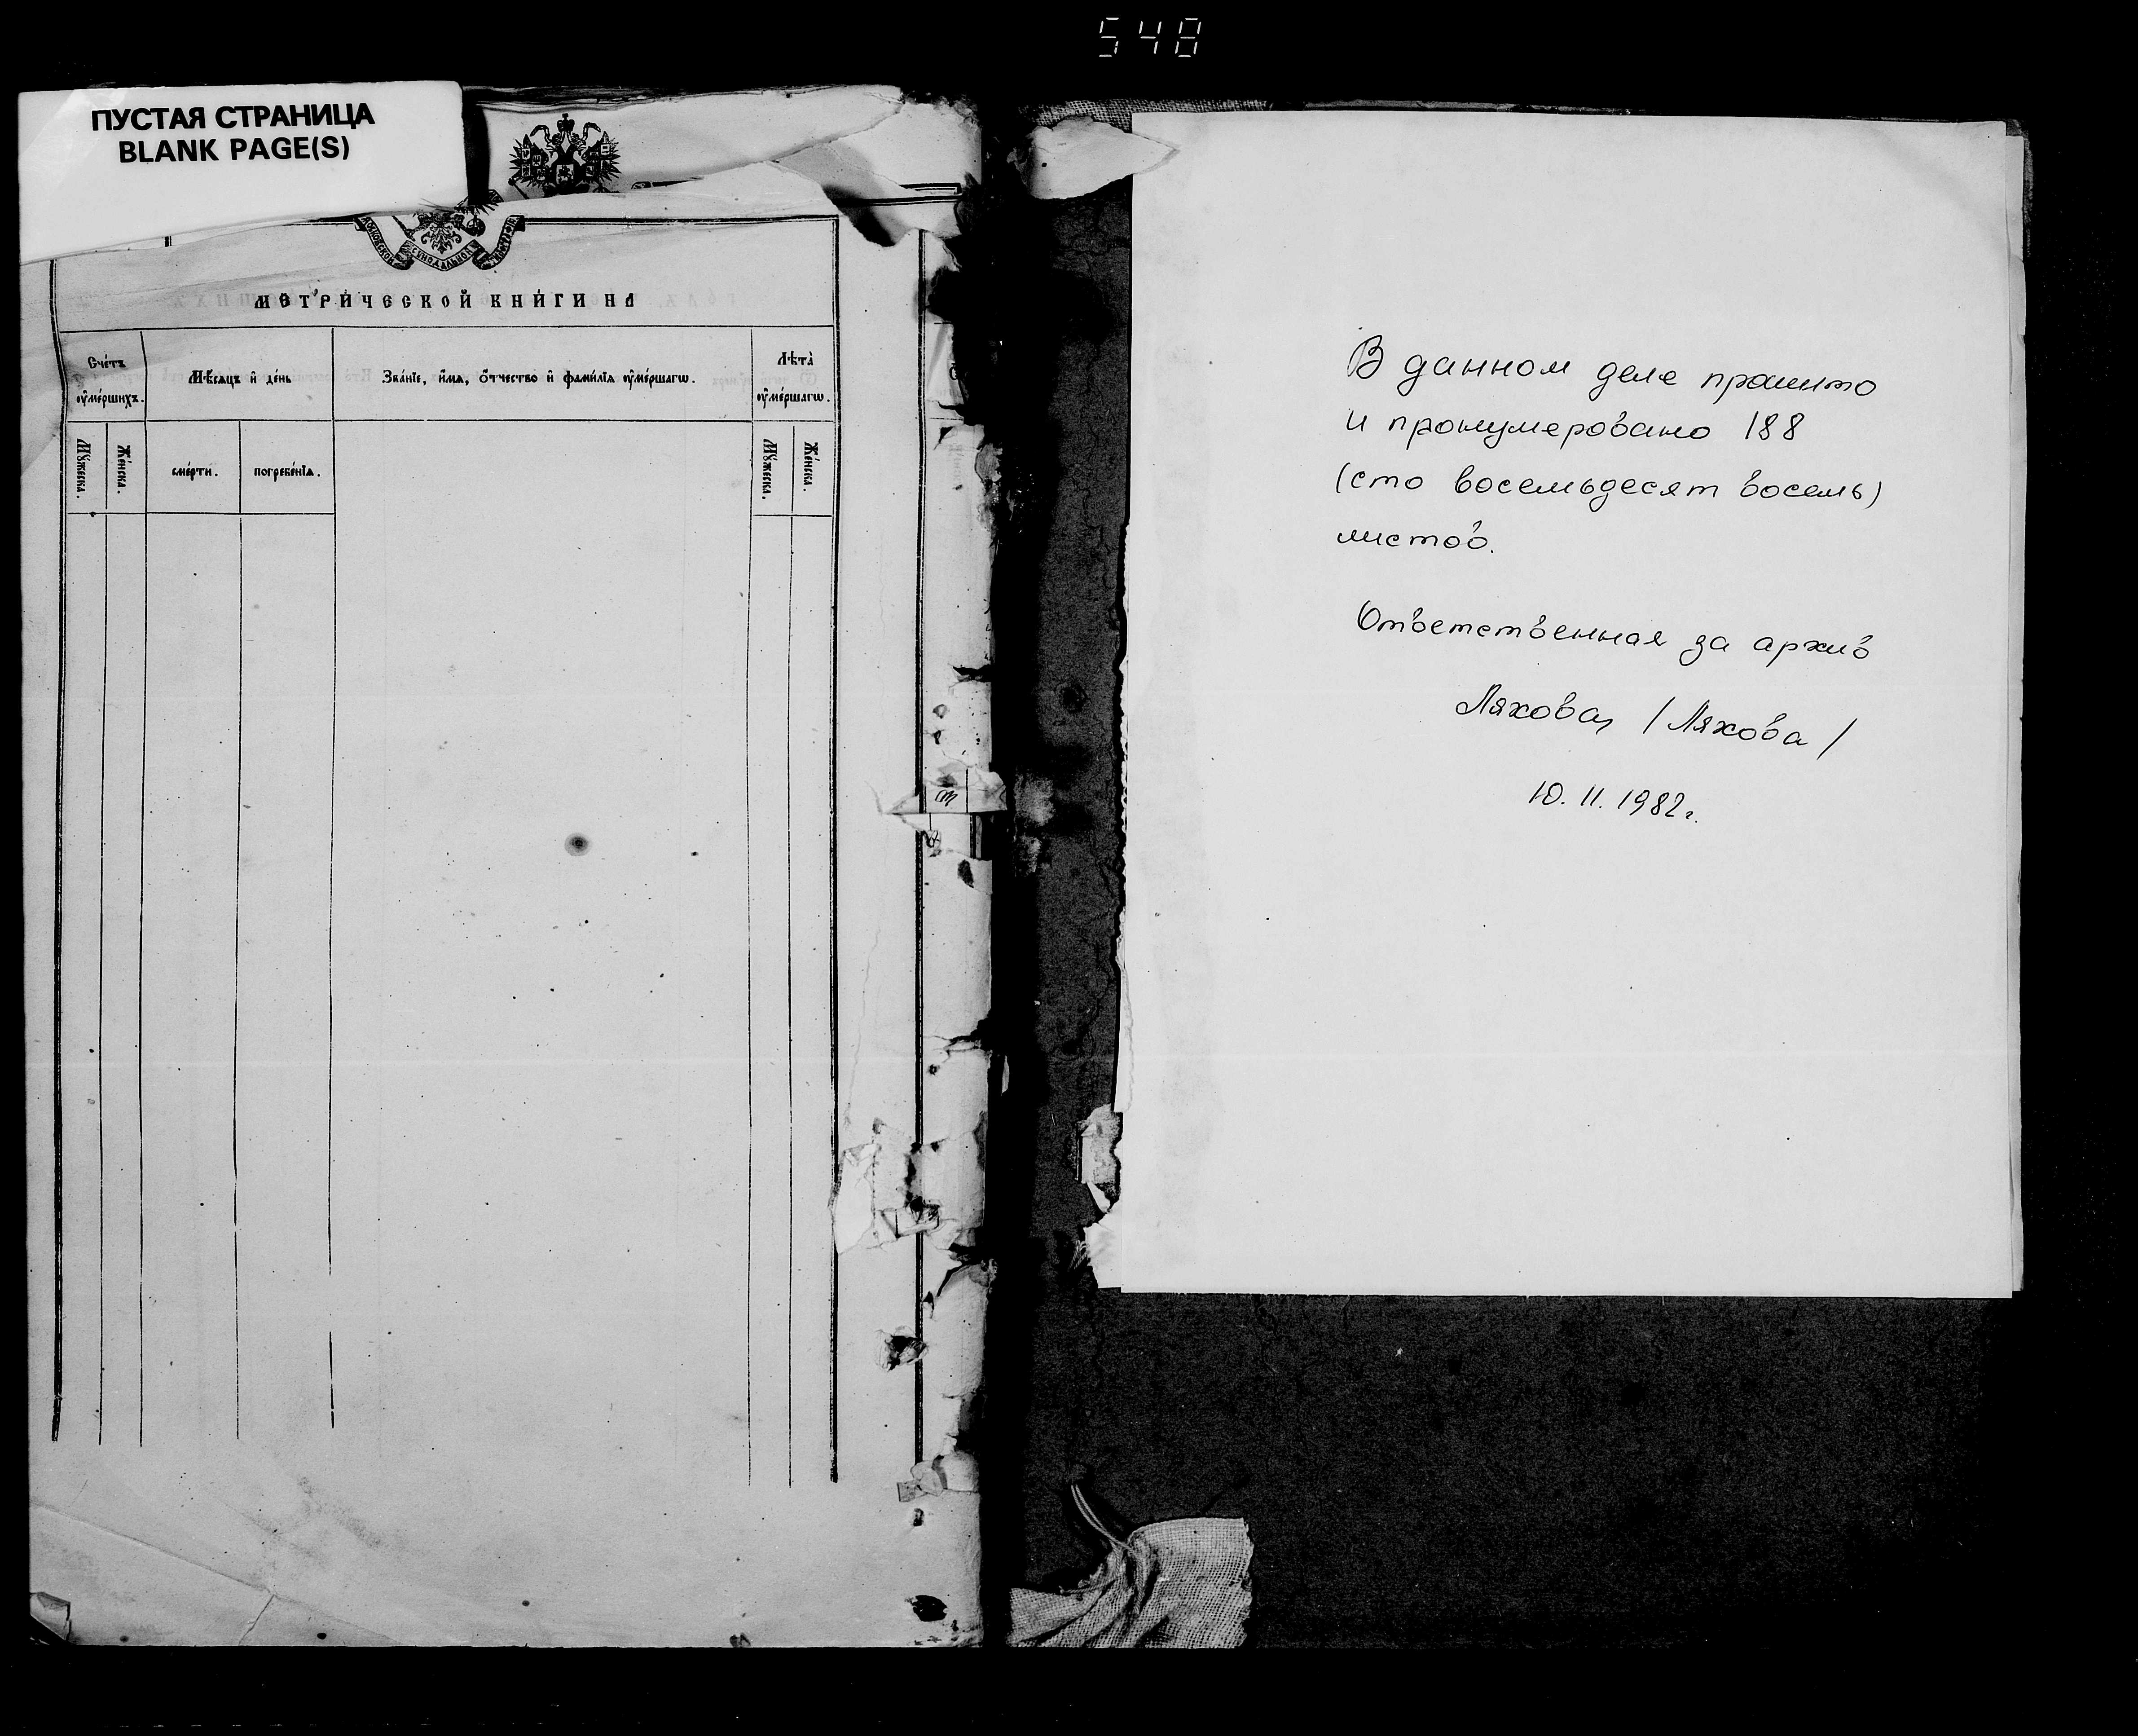 548
ПУСТАЯ СТРАНИЦА
BLANK PAGE(S)
МОСКОВСКОЙ СѴНОДАЛЬНОЙ
МЕТРИ́ЧЕСКОЙ КНИ́ГИ НА
Сче́тъ ᲂу҆ме́ршихъ.
Мѣ́сѧцъ и҆ де́нь
Зва́нїе, и҆́мѧ, ѻ҆́тчество и҆ фами́лїѧ ᲂу҆ме́ршагѡ.
Лѣта̀ ᲂу҆ме́ршагѡ.
Мꙋ́жеска.
Же́нска.
сме́рти.
погребе́нїѧ.
Мꙋ́жеска.
Же́нска.
В данном деле прошито
и пронумеровано 188
(сто восемьдесят восемь)
листов.
Ответственная за архив
Ляхова /Ляхова/
10.11.1982г.